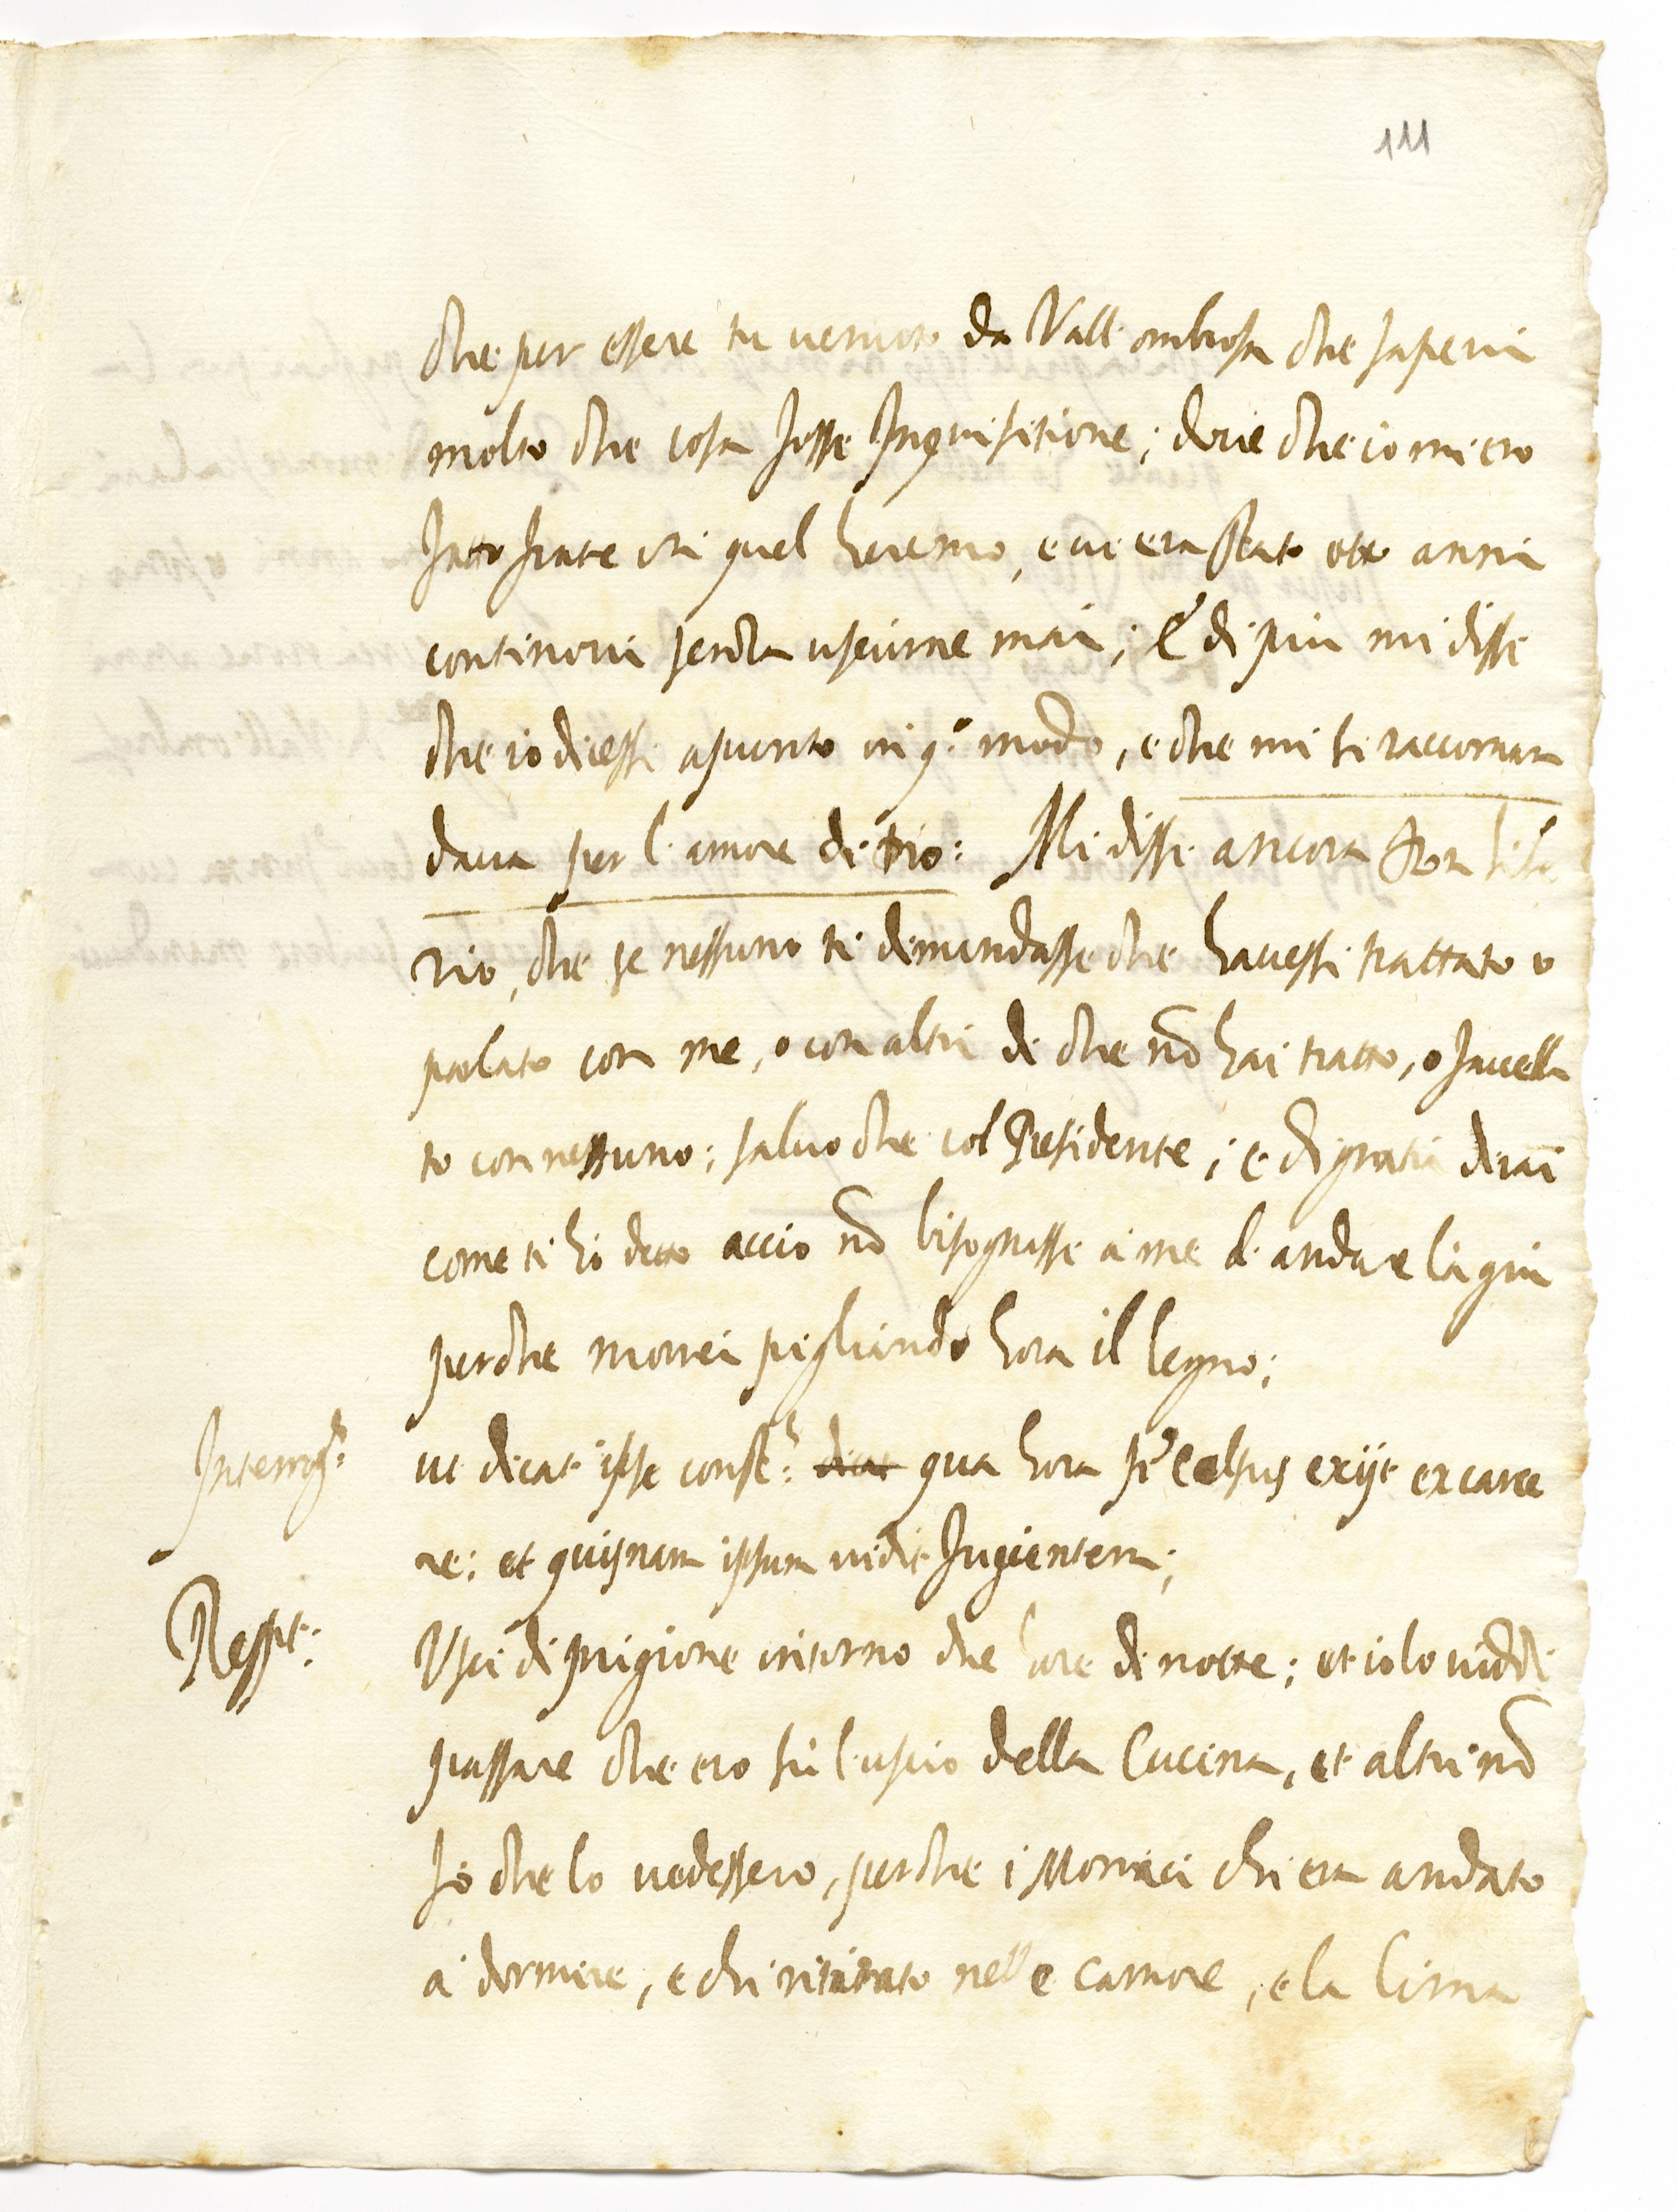 111
che per essere tu venuto da Vall'ombrosa che sapevi
molto che cosa fosse Inquisitione; dove che io mi ero
fatto frate in quel heremo, e vi era stato otto anni
continovi senza uscirne mai; E di piu mi disse
che io dicessi apunto in q.o modo, e che mi si raccoman
dava per l'amore di Dio: Mi disse ancora Don
rio, che se nessuno ti dimandasse che havessi trattato o
parlato con me, o con altri di che nõ hai tratto, o favella
to con nessuno; salvo che col Presidente; e di gratia dirai
come ti hò detto accio nõ bisognasse à me di andare lá giu
perche morrei pigliando hora il legno;
Interrog.s ut dicat ipse const.s dicat qua hora p.s Celsus exijt ex carce
re; et quisnam ipsum vidit fugientem;
Resp.t: Usci di prigione intorno due hore di notte; et io lo viddi
passare che ero sù l'uscio della Cucina, et altri nõ
sò che lo vedessero, perche i Monaci chi era andato
à dormire, e chi ritirato nelle camere, e la